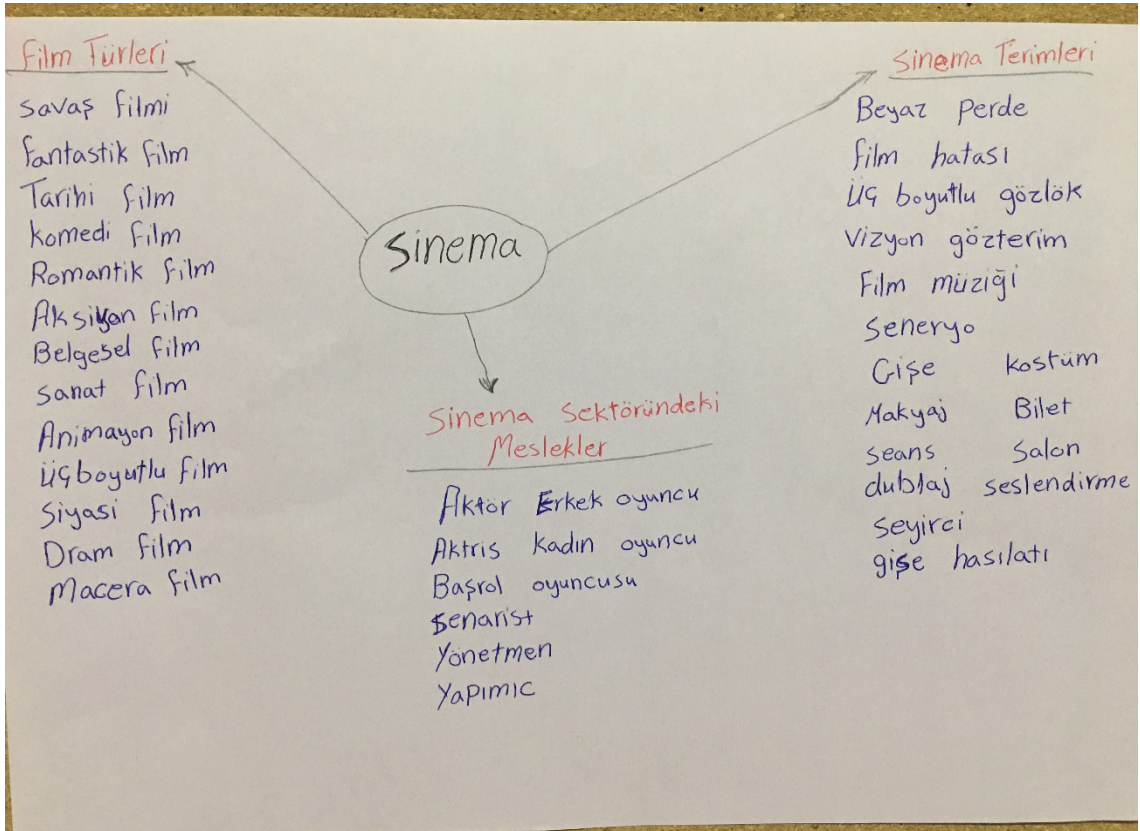 Film Türleri
Savaş filmi
fantastik film
Tarihi film
komedi film
Romantik film
Aksiyon film
Belgesel film
Sanat film
Animayon film
üçboyutlu film
Siyasi film
Dram film
Macera film
Sinema
Sinema Sektöründeki
Meslekler
Aktör Erkek oyuncu
Aktris kadın oyuncu
Başrol oyuncusu
Senarist
Yönetmen
Yapımıc
Sinema Terimleri
Beyaz perde
film hatası
Üç boyutlu gözlök
Vizyon gözterim
Film müziği
Seneryo
Gişe kostüm
Makyaj Bilet
Seans Salon
dublaj seslendirme
Seyirci
gişe hasılatı